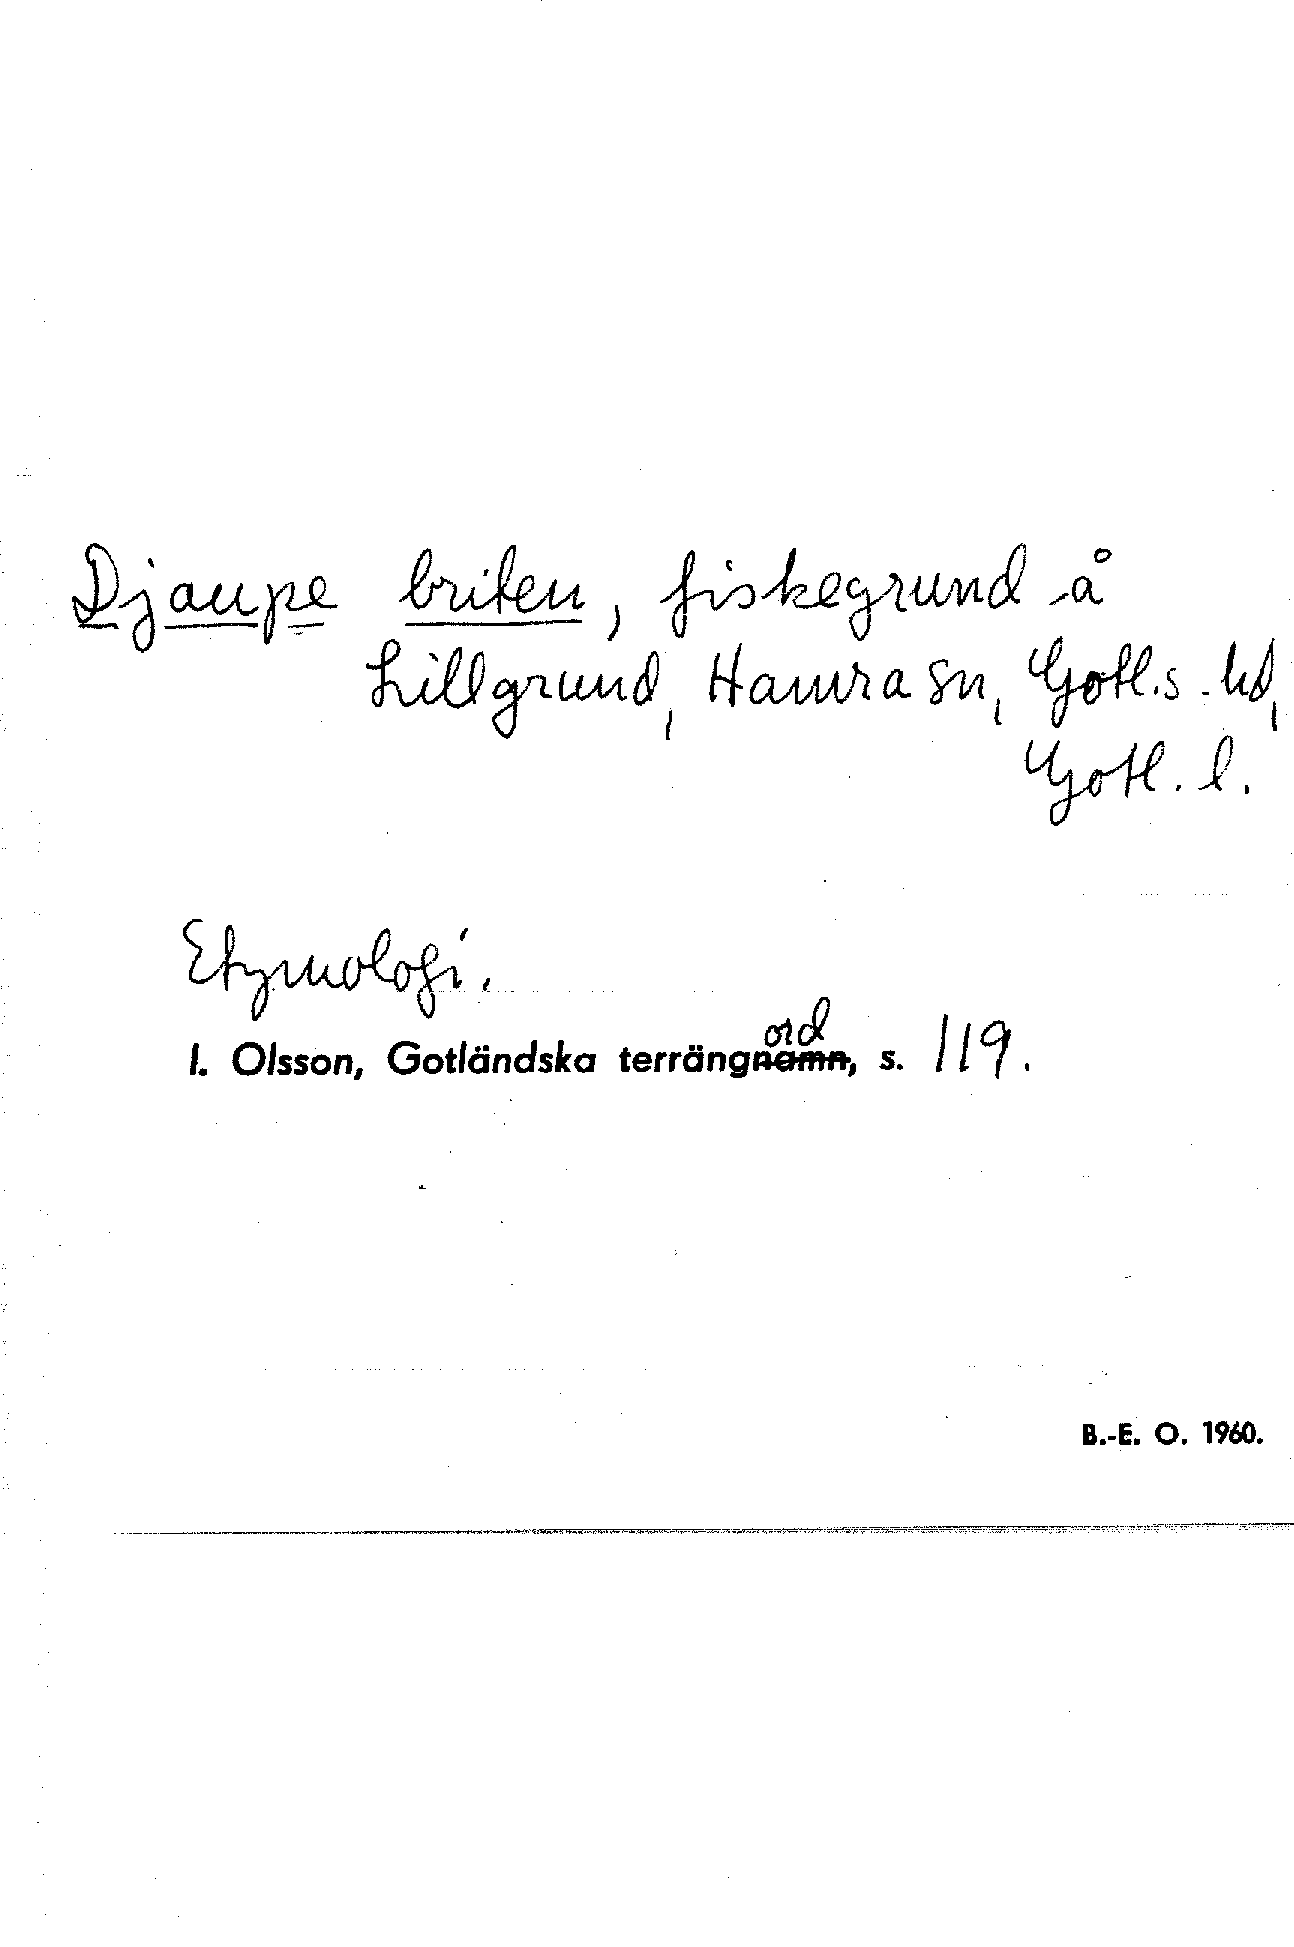 Djaupe briten, fiskegrund å
Lillgrund, Hamra sn, Gotl.s. hd,
Gotl. l.
Etymologi.
ord
I. Olsson, Gotländska terrängnamn, s. 119.
B.-E. O. 1960.